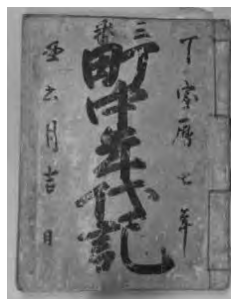 丁宝暦七年
三番
町中年代記
丑六月吉日